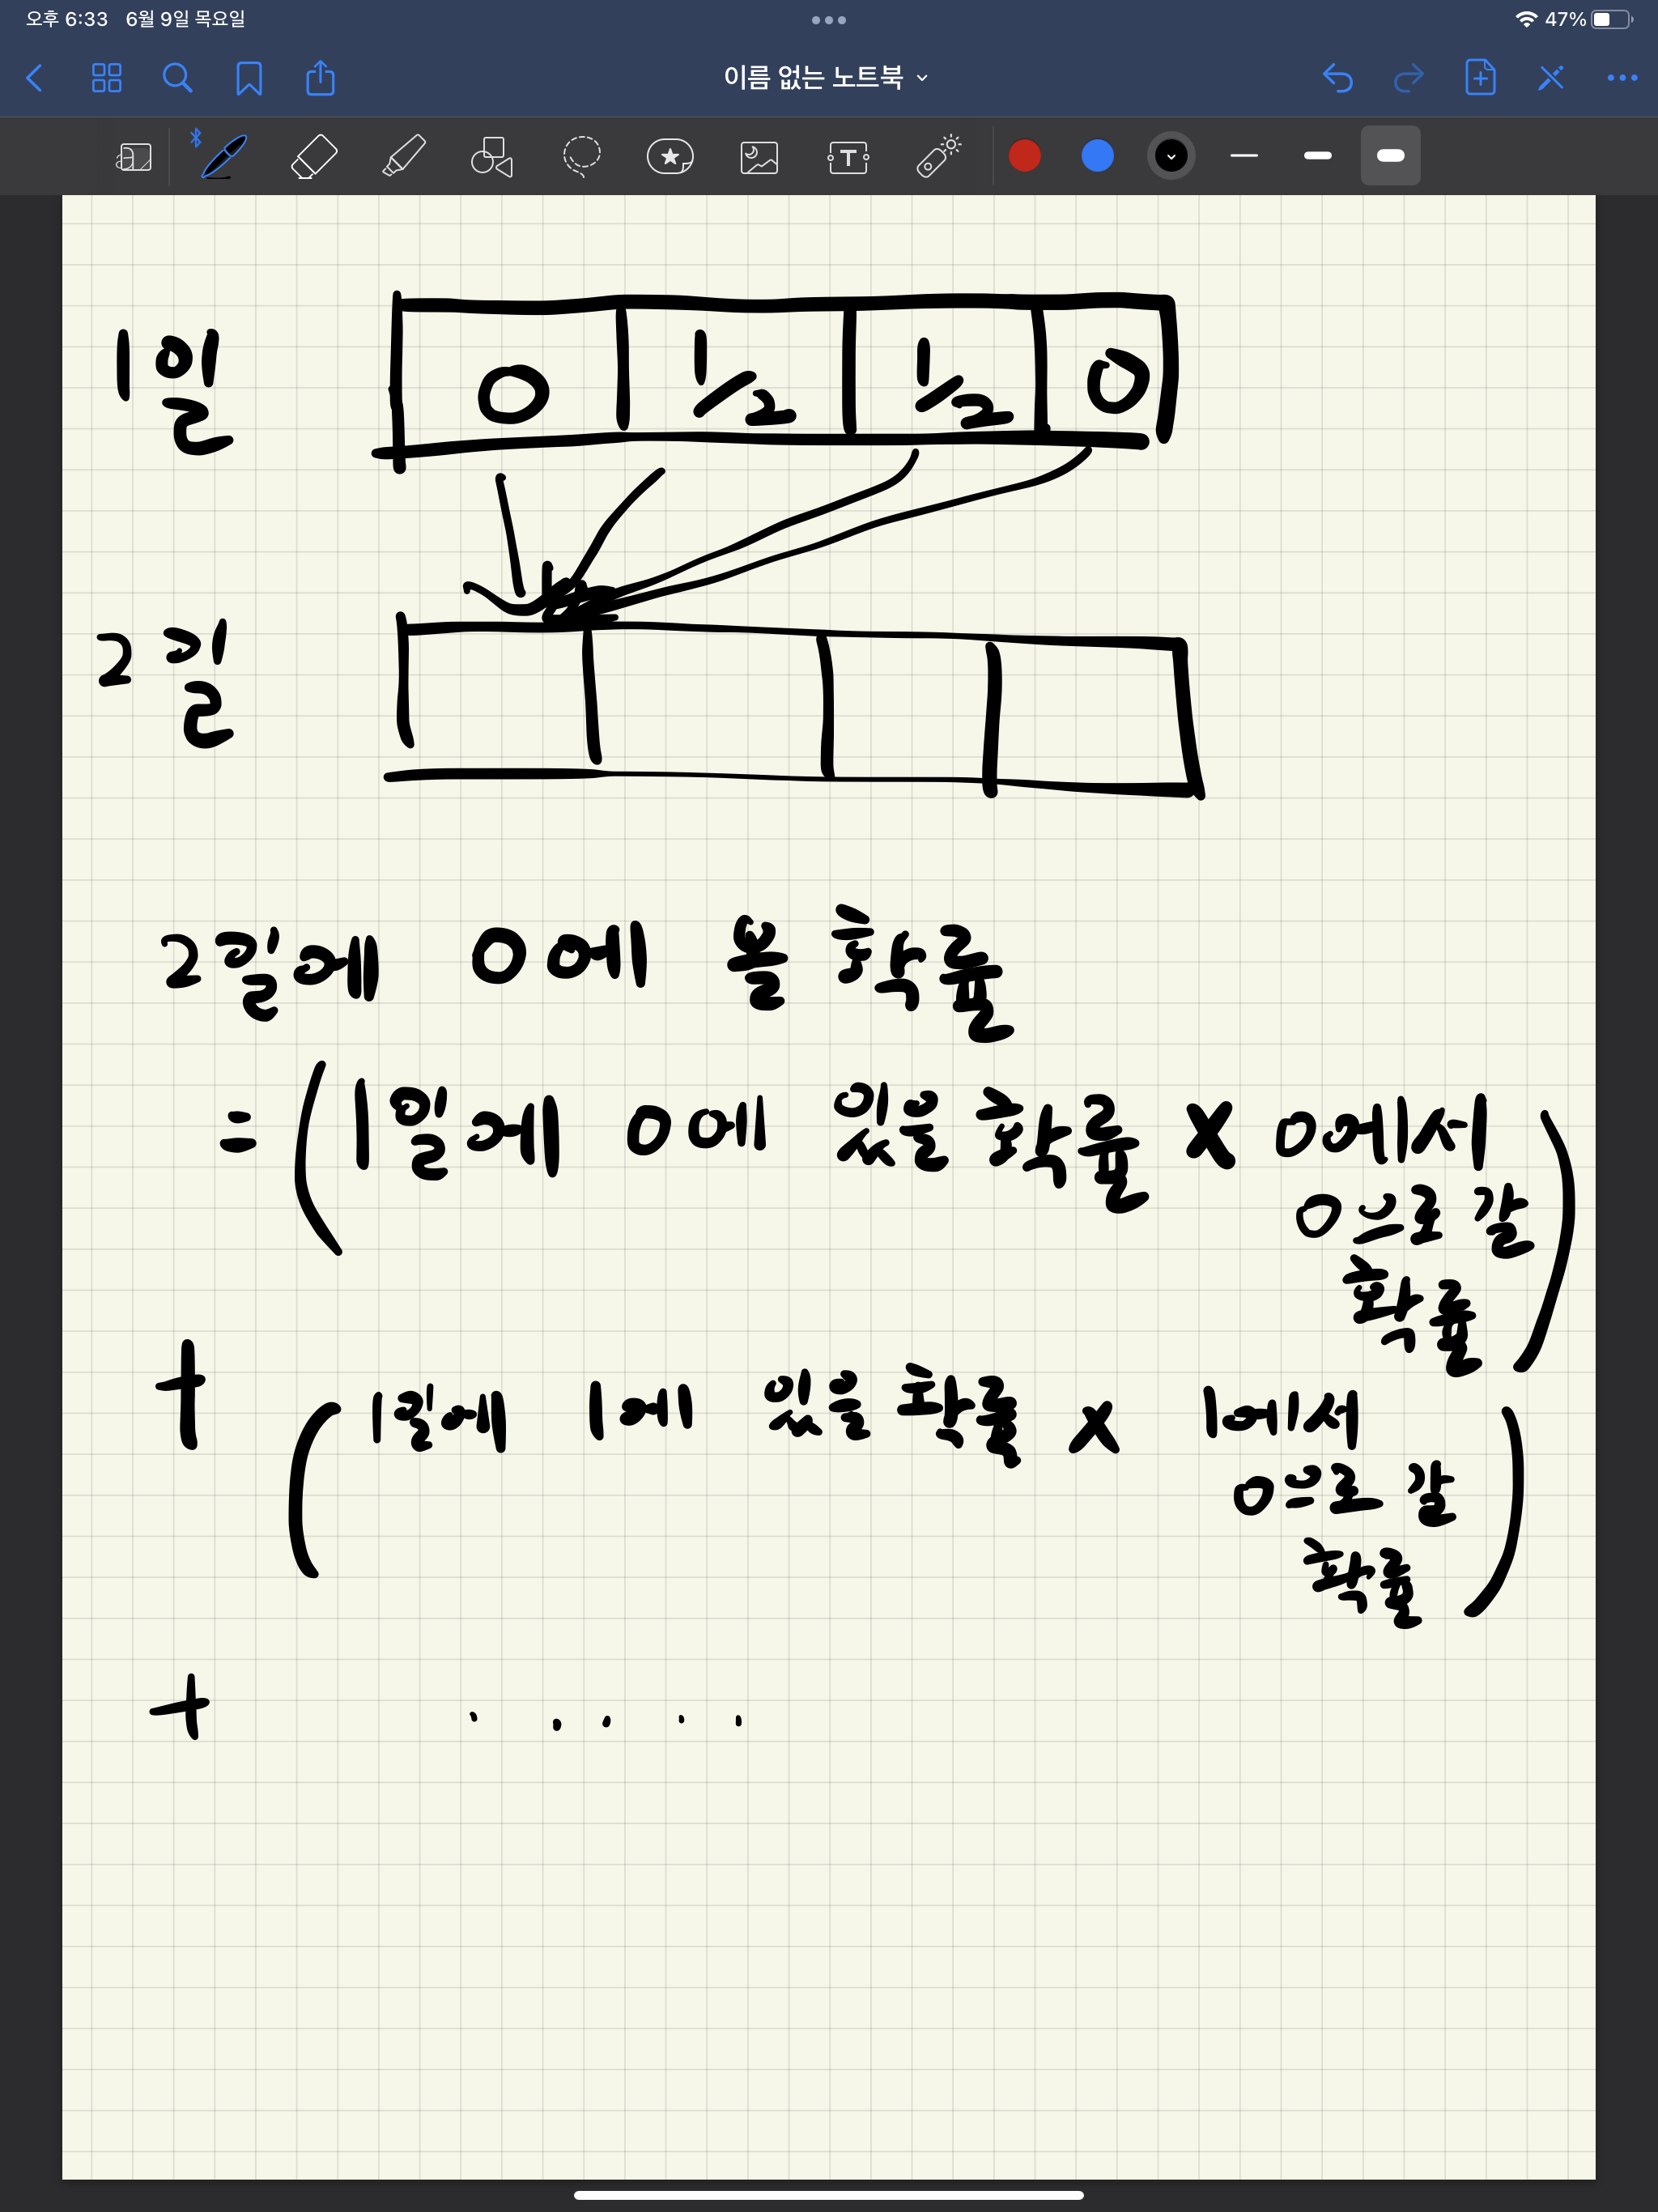 오후 6:33 6월 9일 목요일
47%
이름 없는 노트북
1일
0 1/2 1/2 0
2일
2일에 0에 올 확률
= (1일에 0에 있을 확률 x 0에서
0으로 갈
확률)
+ (1일에 1에 있을 확률 x 1에서
0으로 갈
확률)
+ . . . . .